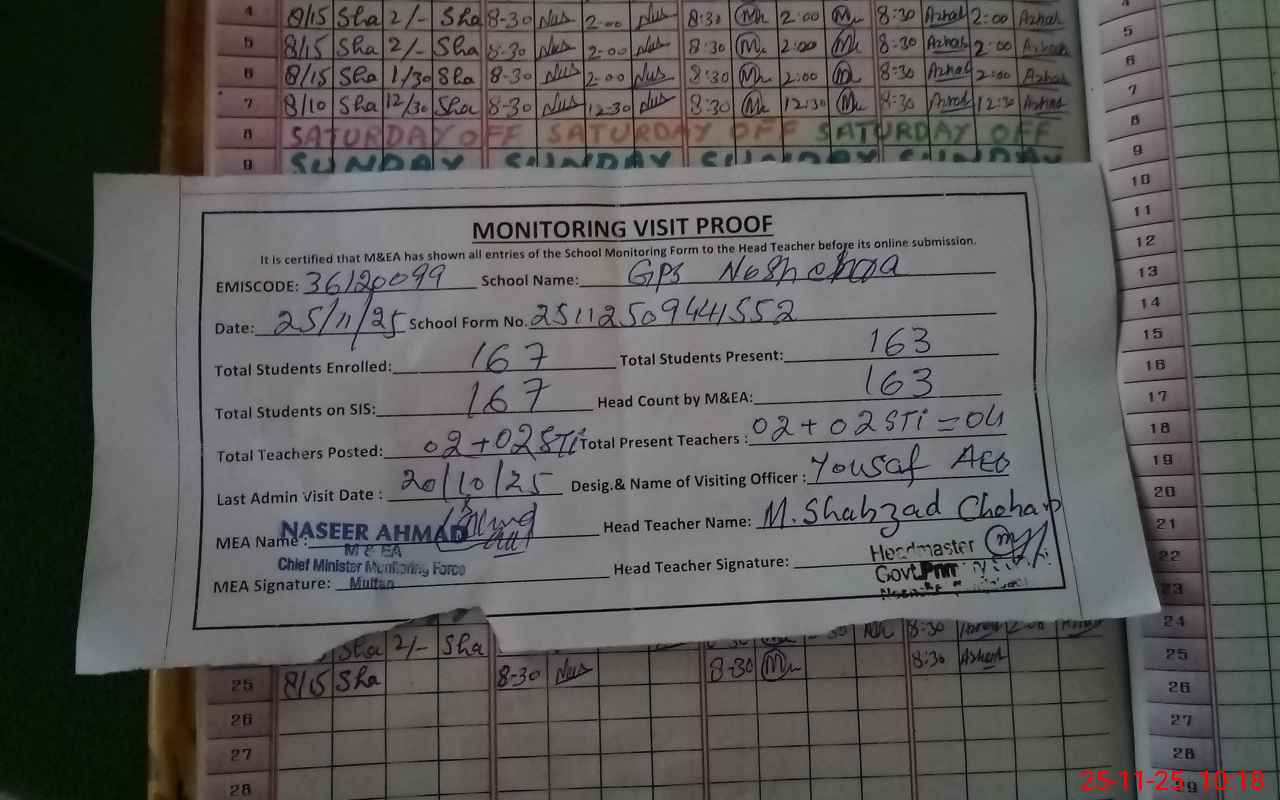 4 8/15 Sha 2/- Sha 8-30 Nus 2-00 Nus 8:30 Mu 2:00 Mu 8:30 Azhad 2:00 Azhad 4
5 8/15 Sha 2/- Sha 8-30 Nus 2-00 Nus 8:30 Mu 2:00 Mu 8:30 Azhad 2:00 Azhad 5
6 8/15 Sha 1/30 Sha 8-30 Nus 2-00 Nus 8:30 Mu 2:00 Mu 8:30 Azhad 2:00 Azhad 6
7 8/10 Sha 12/30 Sha 8-30 Nus 12-30 Nus 8:30 Mu 12:30 Mu 8:30 Azhad 12:30 Azhad 7
8 SATURDAY OFF SATURDAY OFF SATURDAY OFF 8
9 SUNDAY SUNDAY SUNDAY SUNDAY 9
10
11
12
13
14
15
16
17
18
19
20
21
22
23
MONITORING VISIT PROOF
It is certified that M&EA has shown all entries of the School Monitoring Form to the Head Teacher before its online submission.
EMISCODE: 36120099 School Name: GPS Noshehra
Date: 25/11/25 School Form No. 25112509441552
Total Students Enrolled: 167 Total Students Present: 163
Total Students on SIS: 167 Head Count by M&EA: 163
Total Teachers Posted: 02+02 STi Total Present Teachers : 02+02 STi = 04
Last Admin Visit Date : 20/10/25 Desig.& Name of Visiting Officer : Yousaf AEO
MEA Name : NASEER AHMAD Head Teacher Name: M. Shahzad Chohan
M & EA
Chief Minister Monitoring Force
Multan
MEA Signature: Head Teacher Signature:
Headmaster
Govt.
Sha 2/- Sha 8:30 24
25 8/15 Sha 8-30 Nus 8:30 Mu 8:30 Azhad 25
26 26
27 27
28 28
29
25-11-25, 10:18